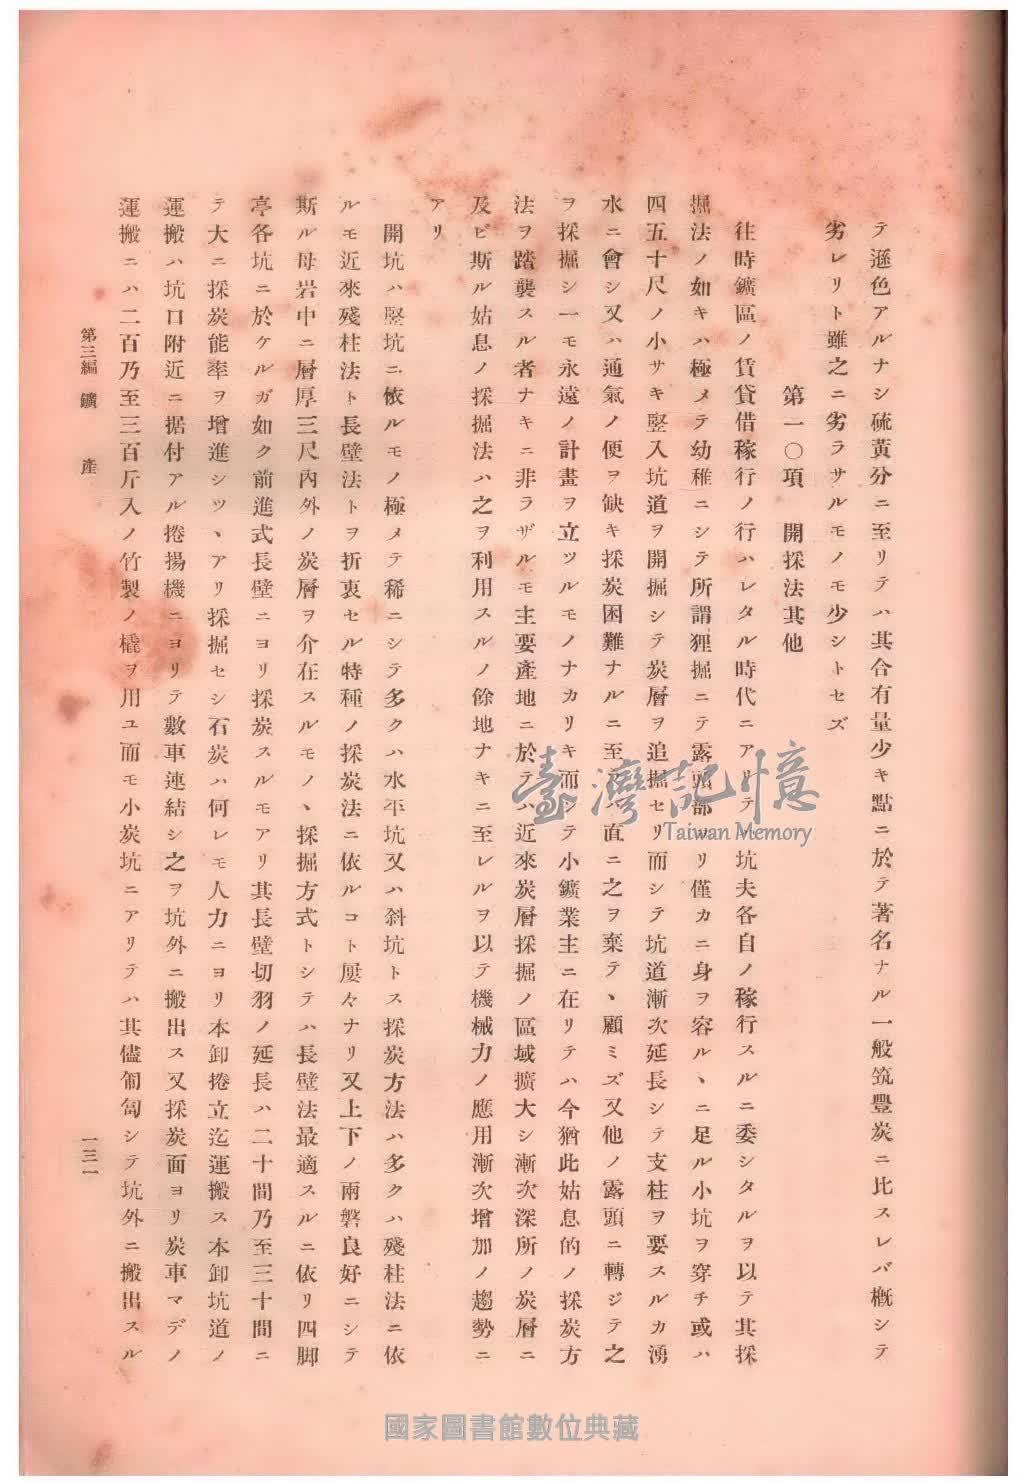 テ遜色アルナシ硫黃分ニ至リテハ其合有量少キ點ニ於テ著名ナル一般筑豐炭ニ比スレバ槪シテ
劣レリト雖之ニ劣ラサルモノモ少シトセズ
第一〇項 開採法其他
往時鑛區ノ賃貸借稼行ノ行ハレタル時代ニアリテ坑夫各自ノ稼行スルニ委シタルヲ以テ其採
掘法ノ如キハ極メテ幼稚ニシテ所謂狸掘ニテ露頭部ヨリ僅カニ身ヲ容ルヽニ足ル小坑ヲ穿チ或ハ
四五十尺ノ小サキ竪入坑道ヲ開掘シテ炭層ヲ追掘セリ而シテ坑道漸次延長シテ支柱ヲ要スルカ湧
水ニ會シ又ハ通氣ノ便ヲ缺キ採炭困難ナルニ至ハ直ニ之ヲ棄テヽ顧ミズ又他ノ露頭ニ轉ジテ之
ヲ採掘シ一モ永遠ノ計畫ヲ立ツルモノナカリキ而シテ小鑛業主ニ在リテハ今猶此姑息的ノ採炭方
法ヲ踏襲スル者ナキニ非ラザルモ主要產地ニ於テハ近來炭層採掘ノ區域擴大シ漸次深所ノ炭層ニ
及ビ斯ル姑息ノ採掘法ハ之ヲ利用スルノ餘地ナキニ至レルヲ以テ機械力ノ應用漸次增加ノ趨勢ニ
アリ
開坑ハ竪坑ニ依ルモノ極メテ稀ニシテ多クハ水平坑又ハ斜坑トス採炭方法ハ多クハ殘柱法ニ依
ルモ近來殘柱法ト長壁法トヲ折衷セル特種ノ採炭法ニ依ルコト屢々ナリ又上下ノ兩磐良好ニシテ
斯ル母岩中ニ層厚三尺內外ノ炭層ヲ介在スルモノヽ採掘方式トシテハ長壁法最適スルニ依リ四脚
亭各坑ニ於ケルガ如ク前進式長壁ニヨリ採炭スルモアリ其長壁切羽ノ延長ハ二十間乃至三十間ニ
テ大ニ採炭能率ヲ增進シツヽアリ採掘セシ石炭ハ何レモ人力ニヨリ本卸捲立迄運搬ス本卸坑道ノ
運搬ハ坑口附近ニ据付アル捲揚機ニヨリテ數車連結シ之ヲ坑外ニ搬出ス又採炭面ヨリ炭車マデノ
運搬ニハ二百乃至三百斤入ノ竹製ノ橇ヲ用ユ而モ小炭坑ニアリテハ其儘匍匐シテ坑外ニ搬出スル
第三編 鑛 產
一三一
臺灣記憶
Taiwan Memory
國家圖書館數位典藏